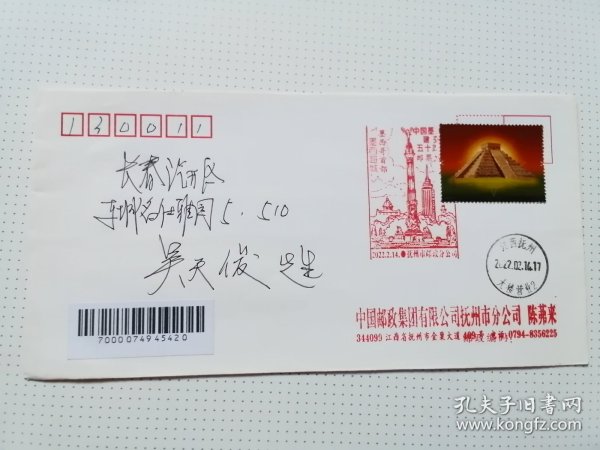 130011
长春汽开区
5.510
吴天俊 先生
7000074945420
墨西哥首都
墨西哥城
中国墨
建交
五十
2022.2.14.抚州市邮政分公司
江西抚州
2022.02.14.17
中国邮政集团有限公司抚州市分公司 陈苑来
344099 江西省抚州市金巢大道 0794-8356225
孔夫子旧书网
www.kongfz.com